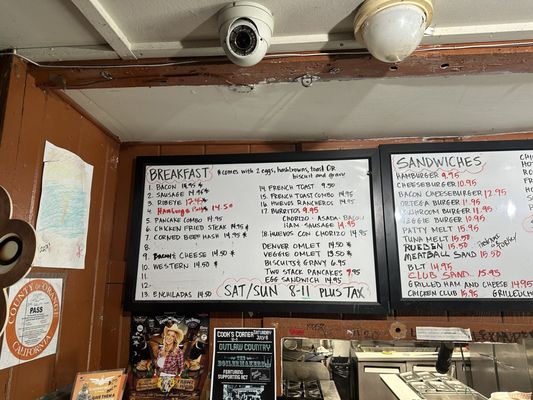 BREAKFAST * COMES WITH 2 EGGS, HASHBROWNS, TOAST OR
BISCUIT AND GRAVY
1 BACON 14.95 *
2 SAUSAGE 14.95 *
3 RIBEYE
4 HAMBURGER PATTY 14.50
5 PANCAKE COMBO 14.95
6 CHICKEN FRIED STEAK 14.95 *
7 CORNED BEEF HASH 14.95 *
9 BACON & CHEESE 14.50 *
10 WESTERN 14.50 *
13 ENCHILADAS 14.50
14 FRENCH TOAST 9.50
15 FRENCH TOAST COMBO 14.95
16 HUEVOS RANCHEROS 14.95
17 BURRITOS 9.95
CHORIZO - ASADA - BACON
HAM - SAUSAGE 14.95
18 HUEVOS CON CHORIZO 14.95
DENVER OMLET 14.50 *
VEGGIE OMLET 13.50 *
BISCUITS & GRAVY 6.95
TWO STACK PANCAKES 9.95
EGG SANDWICH 14.95
SAT/SUN 8-11 PLUS TAX
SANDWICHES
HAMBURGER 9.95
CHEESEBURGER 10.95
BACON CHEESEBURGER 12.95
ORTEGA BURGER 11.95
MUSHROOM BURGER 11.95
VEGGIE BURGER 10.95
PATTY MELT 15.95
TUNA MELT 15.50
RUEBEN 15.50
MEATBALL SAND 15.50
BLT 14.95
CLUB SAND. 15.95
GRILLED HAM AND CHEESE 14.95
CHICKEN CLUB 15.95
GRILLED
COUNTY OF ORANGE
PASS
COOK'S CORNER
OUTLAW COUNTRY
FEATURING